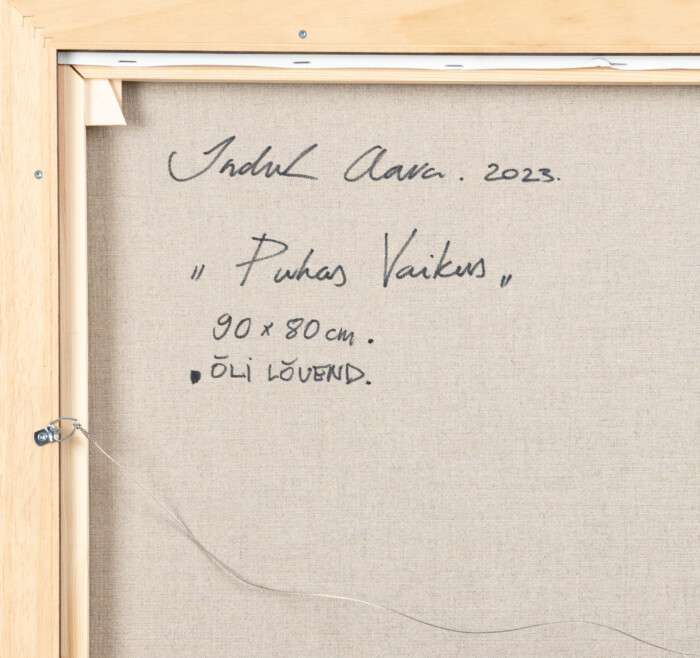 Indrek Aava. 2023.
" Puhas Vaikus "
90 x 80 cm.
ÕLI LÕUEND.